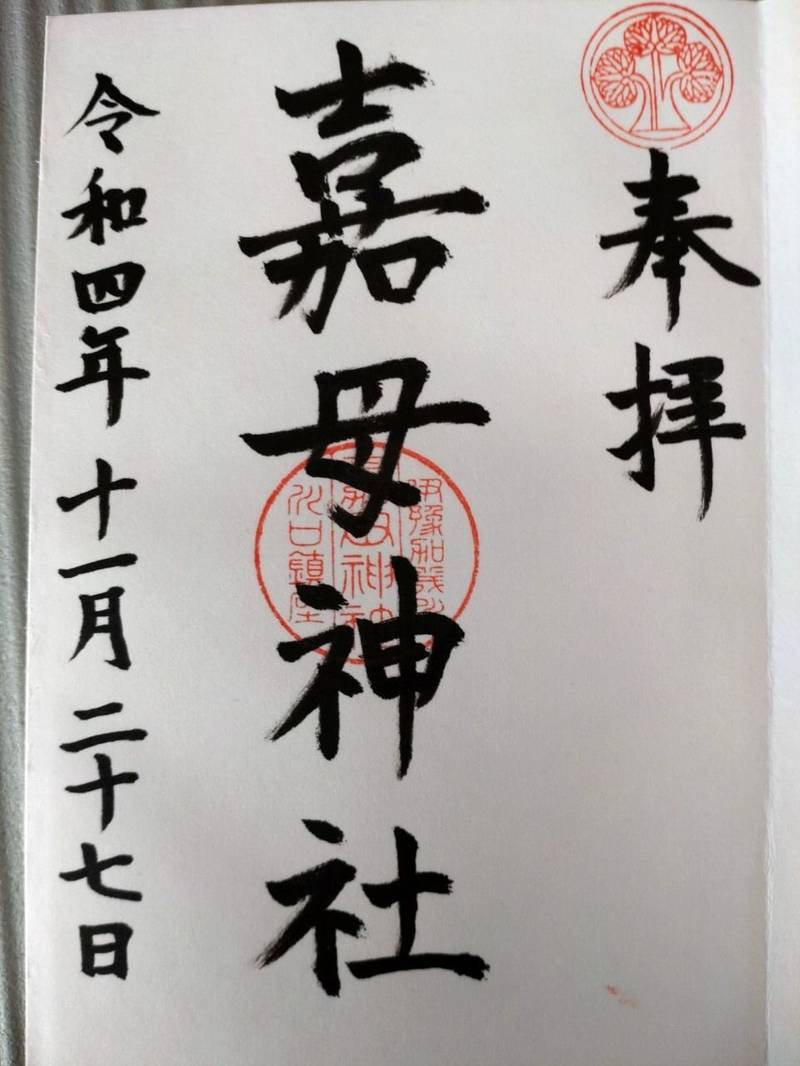 奉拝
嘉母神社
令和四年十一月二十七日